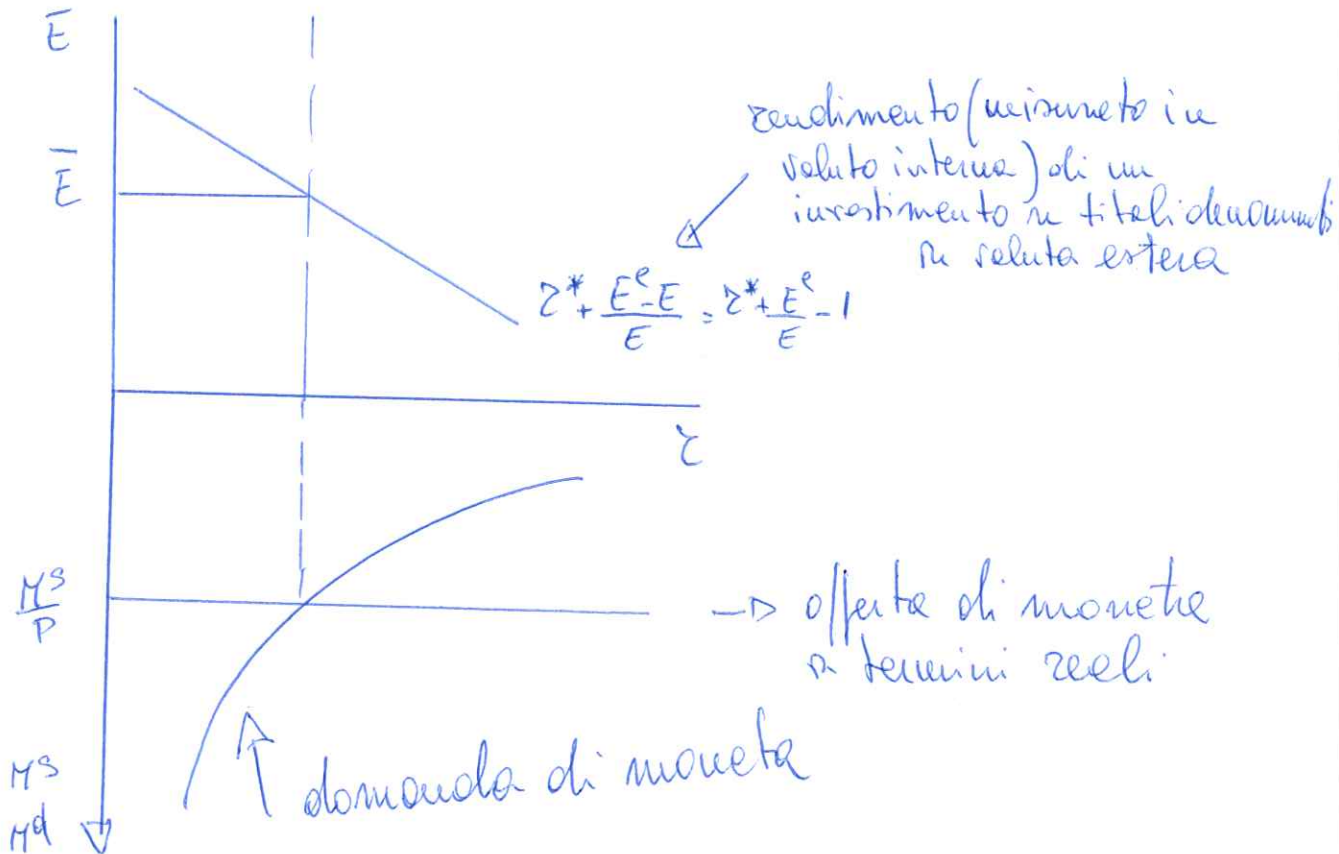 E
E̅
rendimento (misurato in
valuta interna) di un
investimento in titoli denominati
in valuta estera
r* + (E^e - E)/E = r* + E^e/E - 1
r
M^S/P
-> offerta di moneta
in termini reali
domanda di moneta
M^S
M^d